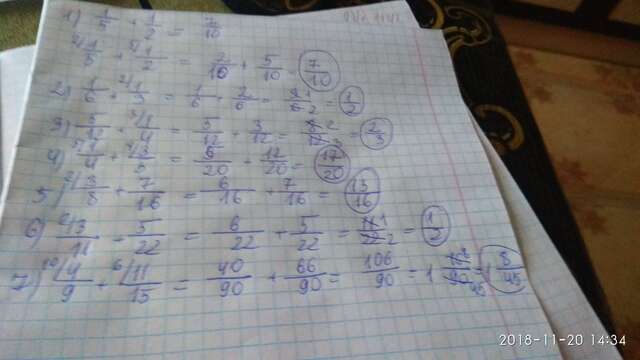 1) 1/5 + 1/2 = 7/10
2/ 1/5 + 5/ 1/2 = 2/10 + 5/10 = 7/10
2) 1/6 + 2/ 1/3 = 1/6 + 2/6 = 1/2
3) 5/12 + 3/ 1/4 = 5/12 + 3/12 = 2/3
4) 5/ 1/4 + 4/ 3/5 = 5/20 + 12/20 = 17/20
5) 2/ 3/8 + 7/16 = 6/16 + 7/16 = 13/16
6) 2/ 3/11 + 5/22 = 6/22 + 5/22 = 11/22 = 1/2
7) 10/ 4/9 + 6/ 11/15 = 40/90 + 66/90 = 106/90 = 1 16/90 = 1 8/45
2018-11-20 14:34